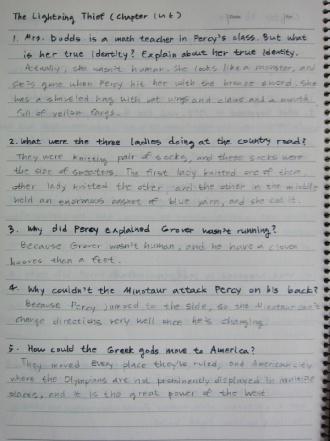 The Lightning Thief (Chapter 1 n 4)
1. Mrs. Dodds is a math teacher in Percy's class. But what
is her true identity? Explain about her true identity.
Actually, she wasn't human. She looks like a monster, and
she's gone when Percy hit her with the bronze sword. She
has a shriveled hag with bat wings and claws and a mouth
full of yellow fangs.
2. What were the three ladies doing at the country road?
They were knitting pair of socks, and these socks were
the size of sweaters. The first lady knitted one of them,
other lady knitted the other and the other in the middle
held an enormous basket of blue yarn, and she cut it.
3. Why did Percy explained Grover wasn't running?
Because Grover wasn't human, and he have a cloven
hooves than a feet.
4. Why couldn't the Minotaur attack Percy on his back?
Because Percy jumped to the side, so the Minotaur can't
change directions very well once he's charging
5. How could the Greek gods move to America?
They moved every place they've ruled, and American city
where the Olympians are not prominently displayed in multiple
places, and it is the great power of the West